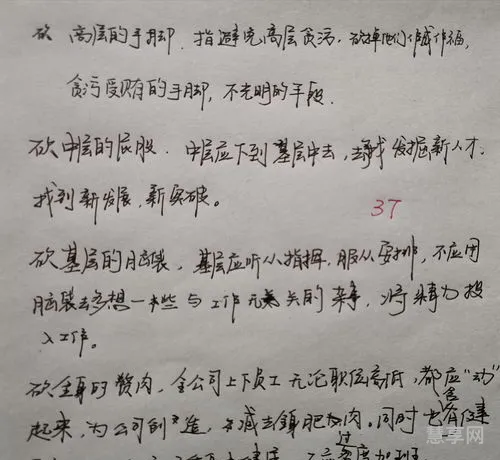 砍 高层的手脚。指避免高层贪污，砍掉他们作威作福，
贪污受贿的手脚，不光明的手段。
砍中层的屁股。中层应下到基层中去，去寻找发掘新人才，
找到新发展，新突破。
37
砍基层的脑袋，基层应听从指挥，服从安排，不应用
脑袋去多想一些与工作无关的杂事，将精力投
入工作。
砍全身的赘肉，全公司上下员工无论职位高低，都应“动”
起来，为公司创造，减去全身肥肉。同时也会有健
过度加班
慧享网